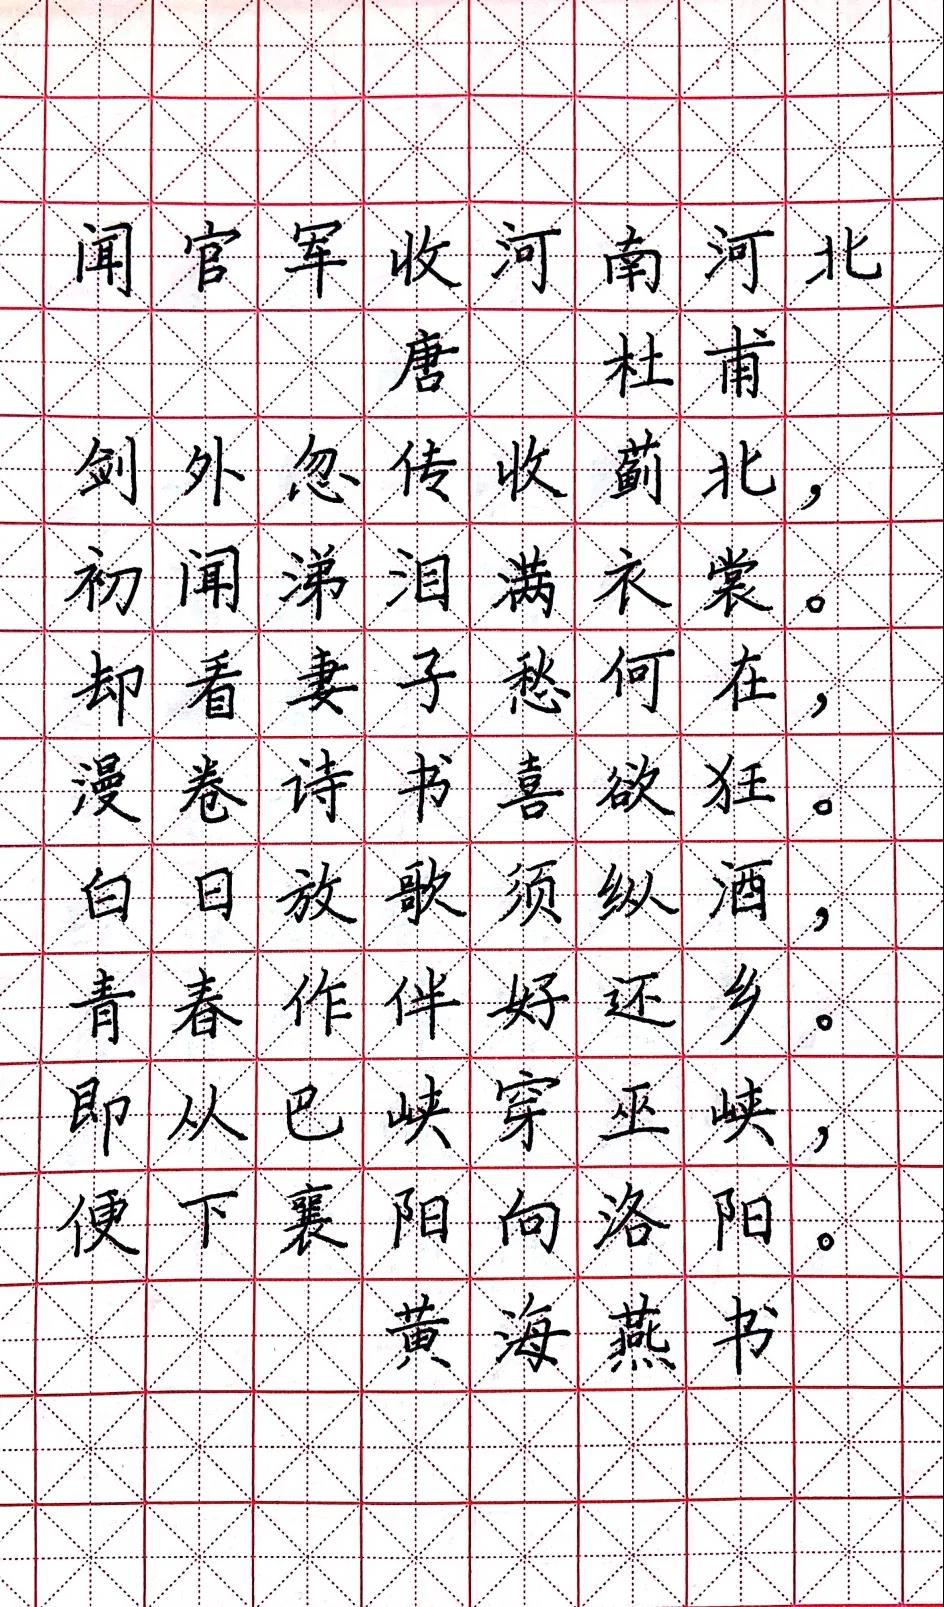 闻官军收河南河北
唐 杜甫
剑外忽传收蓟北，
初闻涕泪满衣裳。
却看妻子愁何在，
漫卷诗书喜欲狂。
白日放歌须纵酒，
青春作伴好还乡。
即从巴峡穿巫峡，
便下襄阳向洛阳。
黄海燕书